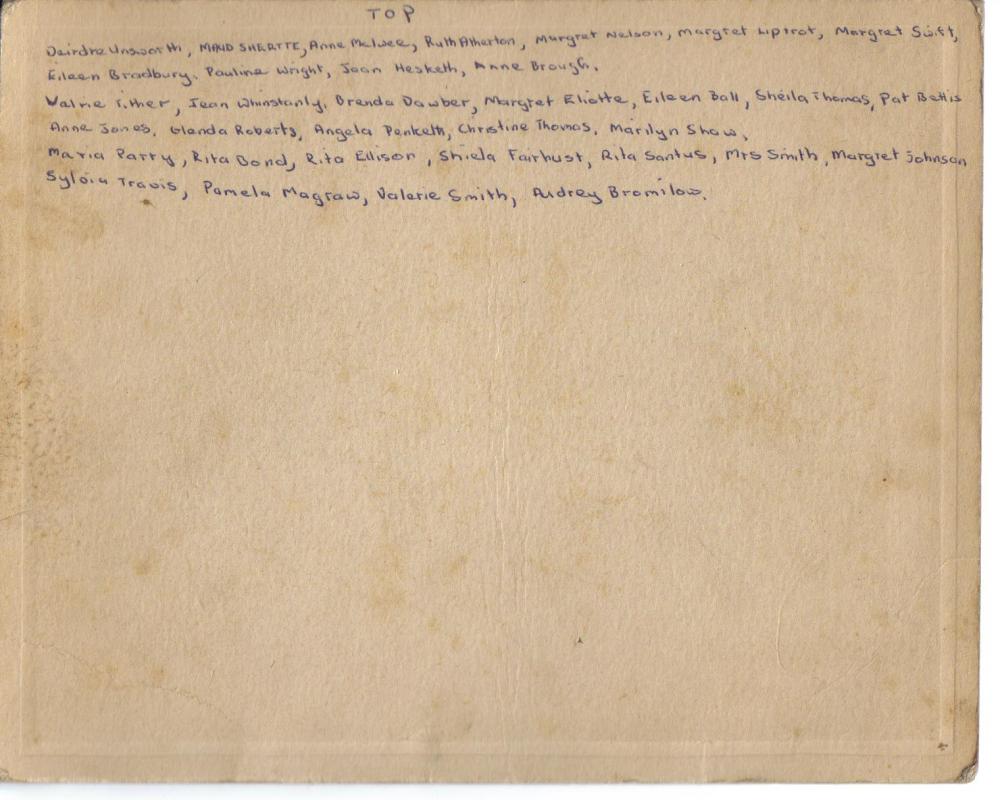 TOP
Deirdre Unsworth, MAUD SHERTTE, Anne McIwee, Ruth Atherton, Margret Nelson, Margret Liptrot, Margret Swift,
Eileen Bradbury, Pauline Wright, Joan Hesketh, Anne Brough.
Valrie Tither, Jean Whinstanly, Brenda Dawber, Margret Eliotte, Eileen Ball, Sheila Thomas, Pat Bettis
Anne Jones, Glenda Roberts, Angela Penketh, Christine Thomas, Marilyn Shaw,
Maria Parry, Rita Bond, Rita Ellison, Shiela Fairhust, Rita Santus, Mrs Smith, Margret Johnson
Sylvia Travis, Pamela Magraw, Valerie Smith, Audrey Bromilow.